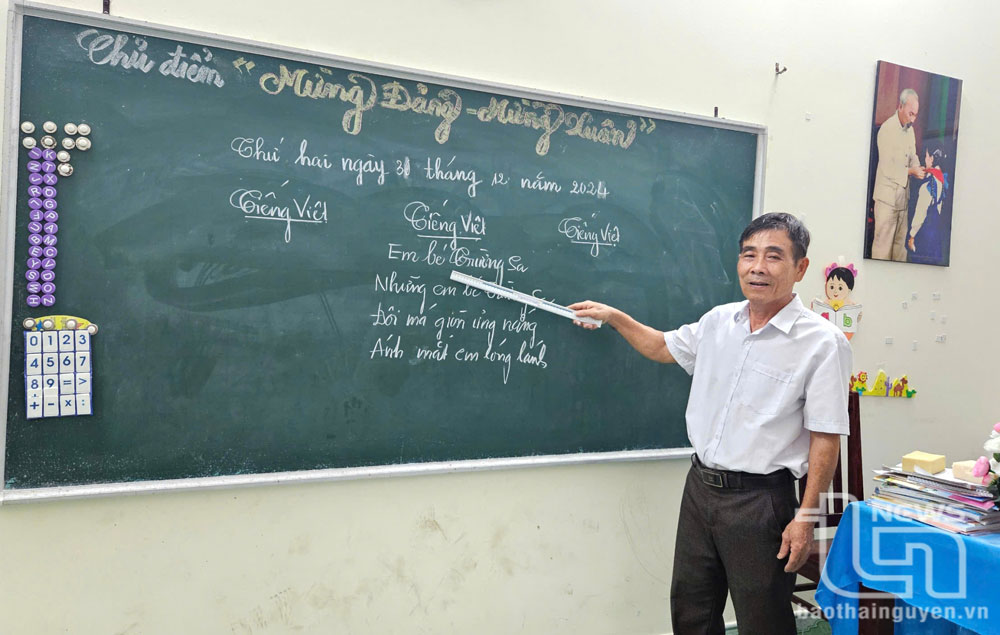 Chủ điểm "Mừng Đảng - Mừng Xuân"
Thứ hai ngày 31 tháng 12 năm 2024
Tiếng Việt
Tiếng Việt
Tiếng Việt
Em bé Trường Sa
Những em bé
Đôi má giòn ửng nắng
Ánh mắt em lóng lánh
0 1 2 3
4 5 6 7
8 9 = >
+ - × :
NEWS
TN
baothainguyen.vn